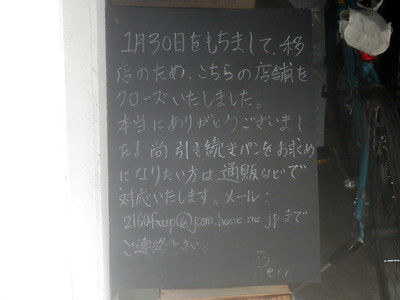 1月30日をもちまして、移
店のため、こちらの店舗を
クローズいたしました。
本当にありがとうございまし
た！尚 引き続きパンをお求め
になりたい方は 通販などで
対応いたします。メール：
まで
ご連絡下さい。